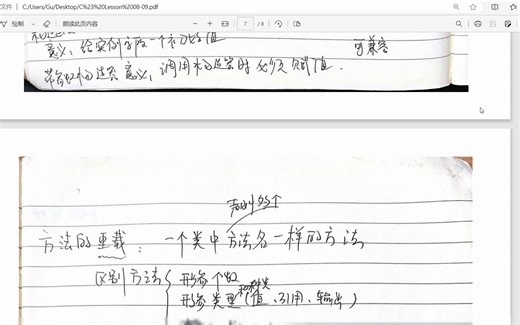 文件 | C:/Users/Gu/Desktop/C%23%20Lesson%2008-09.pdf
绘制 朗读此页内容 7 /8
意义：给实例字段一个初始值 可兼容
带参数构造 意义：调用构造时必须赋值.
方法的重载： 一个类中方法名一样的方法
区别方法 形参个数
形参类型 (值、引用、输出)